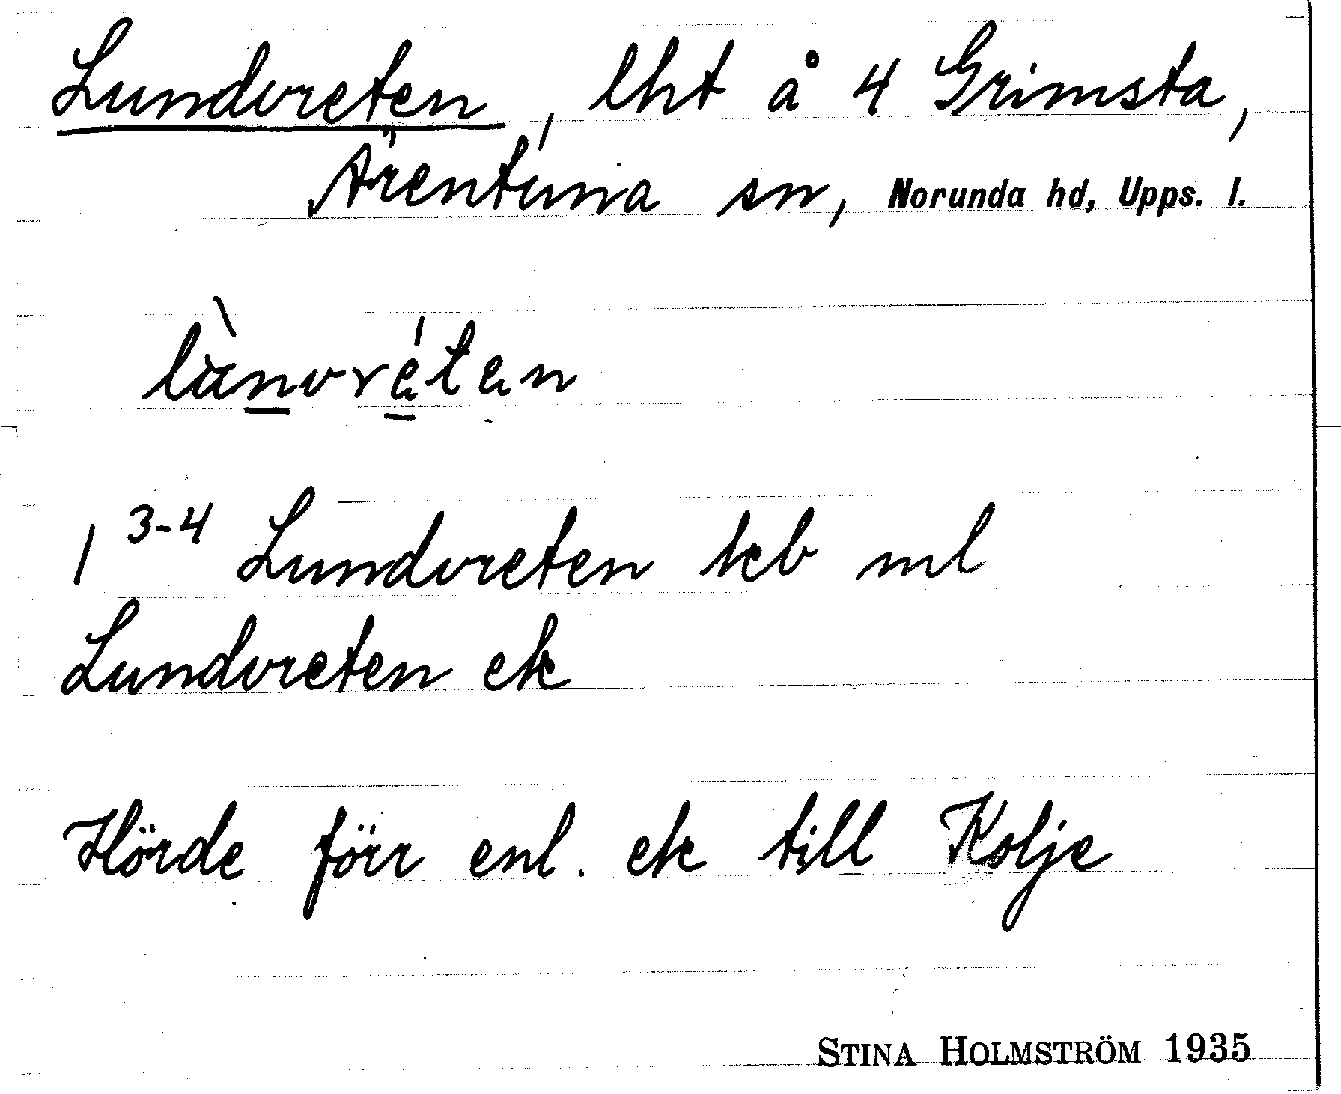 Lundvreten, lht å 4 Grimsta,
Ärentuna sn, Norunda hd, Upps. l.
1 3-4 Lundvreten kb ml
Lundvreten ek
Hörde förr enl. ek till Kolje
STINA HOLMSTRÖM 1935